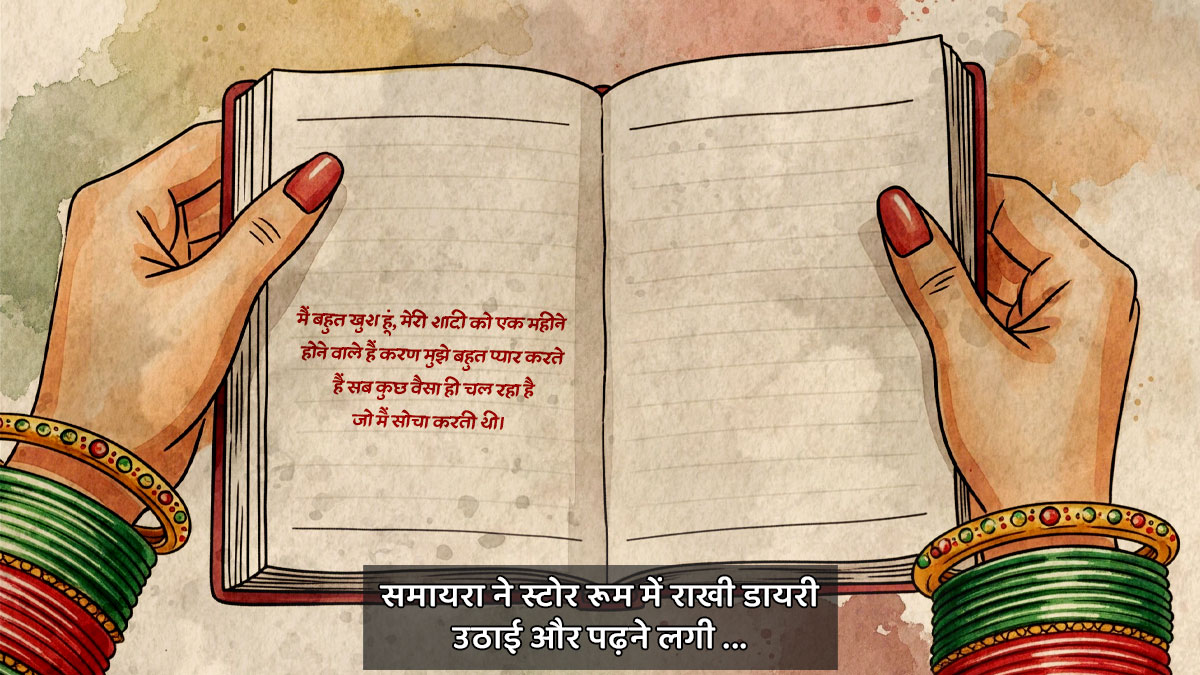 मैं बहुत खुश हूं, मेरी शादी को एक महीने
होने वाले हैं करण मुझे बहुत प्यार करते
हैं सब कुछ वैसा ही चल रहा है
जो मैं सोचा करती थी।
समायरा ने स्टोर रूम में राखी डायरी
उठाई और पढ़ने लगी ...